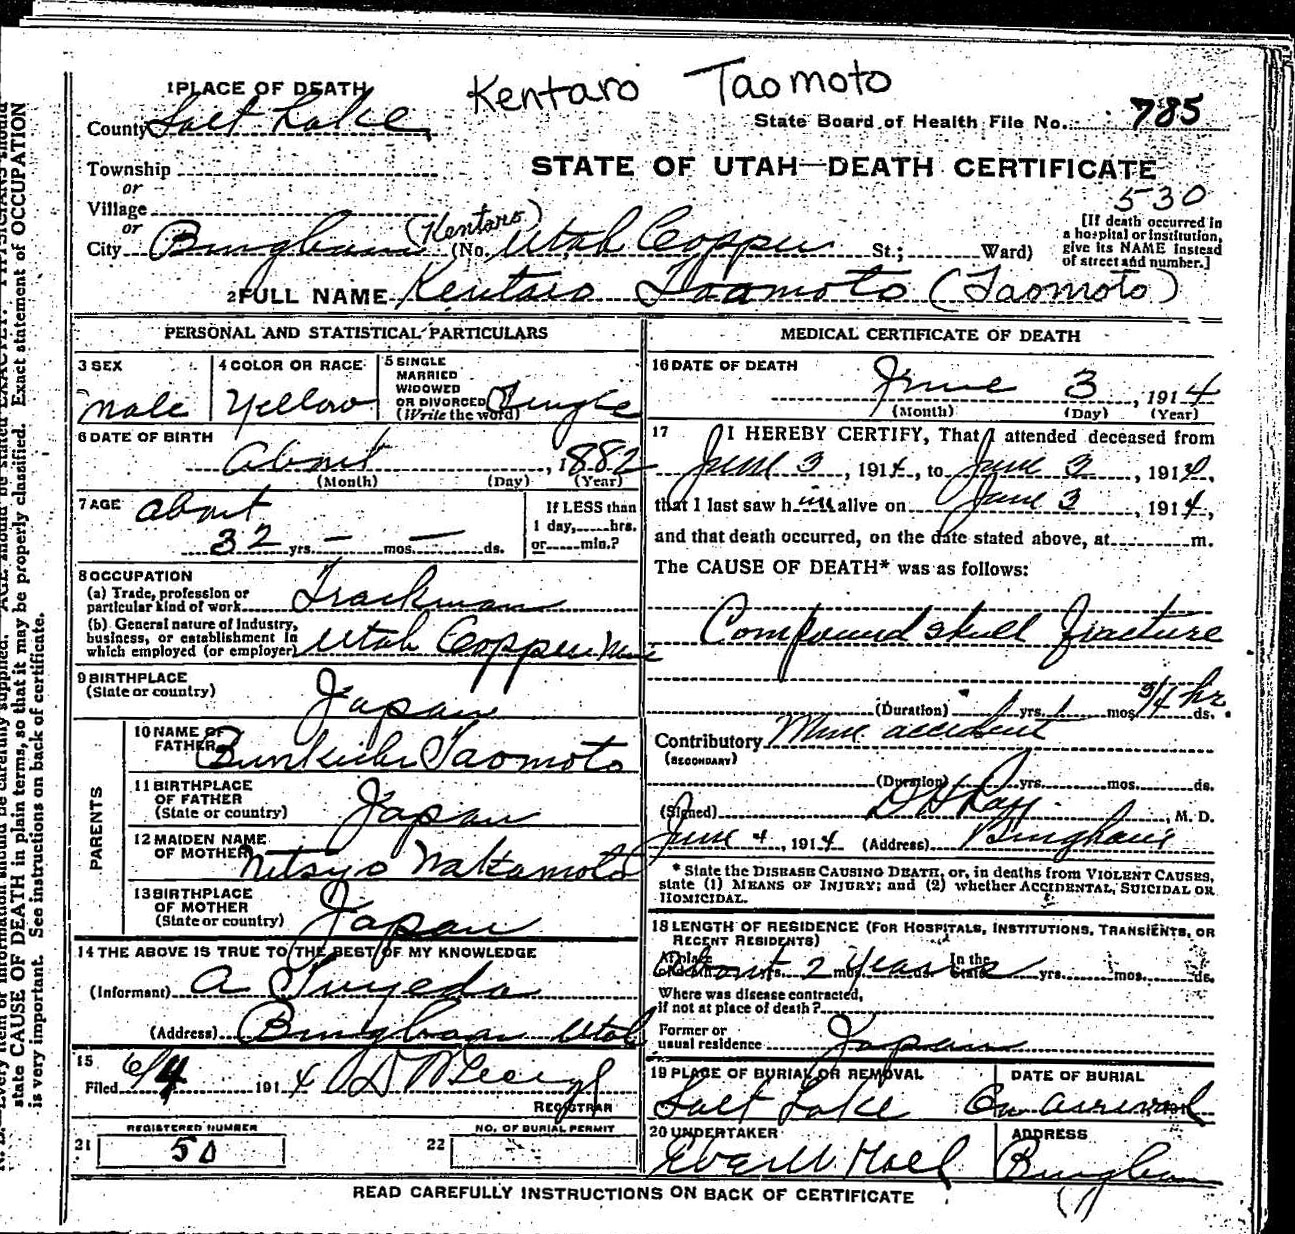 Kentaro Taomoto
1 PLACE OF DEATH
County Salt Lake
State Board of Health File No. 785
STATE OF UTAH—DEATH CERTIFICATE
Township
or
Village
or
530
City Bingham (Kentaro) (No. Utah Copper St.; Ward)
[If death occurred in
a hospital or institution,
give its NAME instead
of street and number.]
2 FULL NAME Kentaro Taamoto (Taomoto)
PERSONAL AND STATISTICAL PARTICULARS
3 SEX
Male
4 COLOR OR RACE
Yellow
5 SINGLE
MARRIED
WIDOWED
OR DIVORCED
(Write the word)
Single
6 DATE OF BIRTH
about, 1882
(Month) (Day) (Year)
7 AGE about
32 yrs. — mos. — ds.
If LESS than
1 day, hrs.
or min.?
8 OCCUPATION
(a) Trade, profession or
particular kind of work Trackman
(b) General nature of Industry,
business, or establishment in
which employed (or employer) Utah Copper Mine
9 BIRTHPLACE
(State or country)
Japan
PARENTS
10 NAME OF
FATHER
Taomoto
11 BIRTHPLACE
OF FATHER
(State or country)
Japan
12 MAIDEN NAME
OF MOTHER
Mitsyo Nakamoto
13 BIRTHPLACE
OF MOTHER
(State or country)
Japan
14 THE ABOVE IS TRUE TO THE BEST OF MY KNOWLEDGE
(Informant) A
(Address) Bingham Utah
15
Filed 6/4 1914
REGISTRAR
REGISTERED NUMBER
21 50
NO. OF BURIAL PERMIT
22
MEDICAL CERTIFICATE OF DEATH
16 DATE OF DEATH
June 3, 1914
(Month) (Day) (Year)
17 I HEREBY CERTIFY, That I attended deceased from
June 3, 1914, to June 3, 1914,
that I last saw him alive on June 3, 1914,
and that death occurred, on the date stated above, at m.
The CAUSE OF DEATH* was as follows:
Compound skull fracture
(Duration) yrs. mos. 3/4 hr. ds.
Contributory Mine accident
(SECONDARY)
(Duration) yrs. mos. ds.
(Signed) , M. D.
June 4, 1914 (Address) Bingham
* State the DISEASE CAUSING DEATH, or, in deaths from VIOLENT CAUSES,
state (1) MEANS OF INJURY; and (2) whether ACCIDENTAL, SUICIDAL OR
HOMICIDAL.
18 LENGTH OF RESIDENCE (FOR HOSPITALS, INSTITUTIONS, TRANSIENTS, OR
RECENT RESIDENTS)
At place
of death yrs. mos. ds. In the State yrs. mos. ds.
About 2 years
Where was disease contracted,
if not at place of death?
Former or
usual residence Japan
19 PLACE OF BURIAL OR REMOVAL
Salt Lake
DATE OF BURIAL
On arrival
20 UNDERTAKER
ADDRESS
Bingham
READ CAREFULLY INSTRUCTIONS ON BACK OF CERTIFICATE
state CAUSE OF DEATH in plain terms, so that it may be properly classified. Exact statement of OCCUPATION
is very important. See instructions on back of certificate.